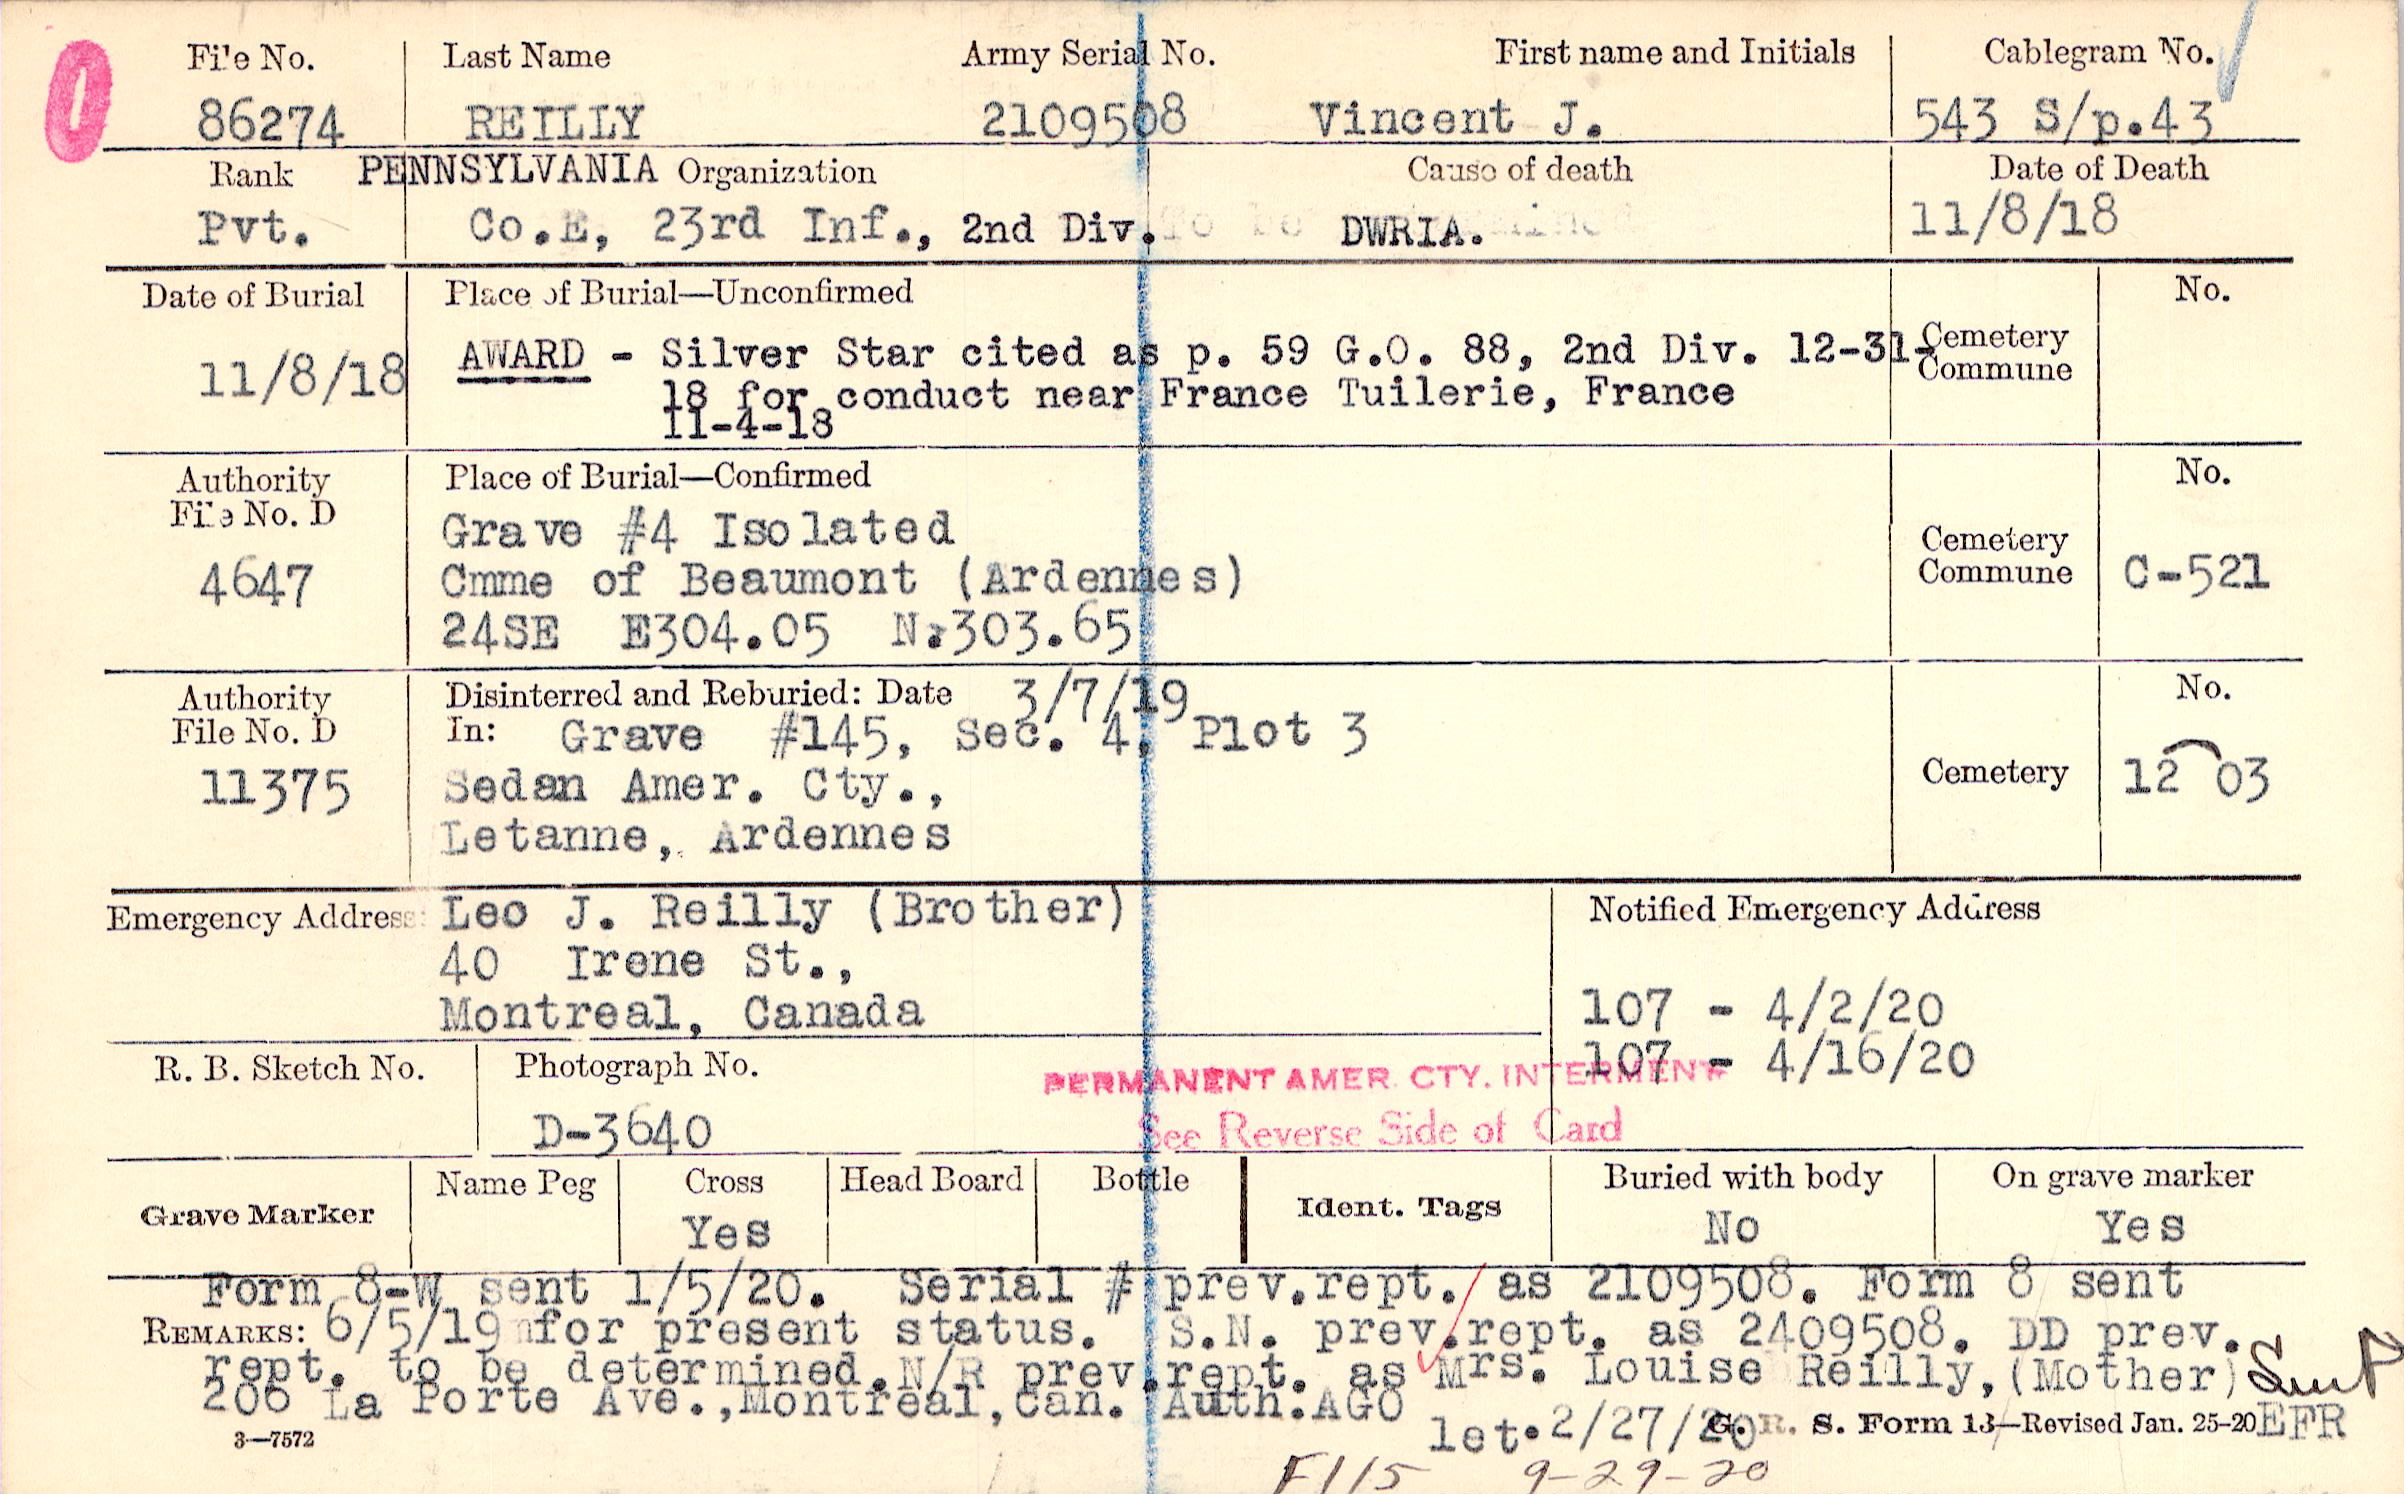 File No. Last Name Army Serial No. First name and Initials Cablegram No.
86274 REILLY 2109508 Vincent J. 543 S/p.43
Rank PENNSYLVANIA Organization Cause of death Date of Death
Pvt. Co.E, 23rd Inf., 2nd Div. DWRIA. 11/8/18
Date of Burial Place of Burial—Unconfirmed No.
11/8/18 AWARD - Silver Star cited as p. 59 G.O. 88, 2nd Div. 12-31- Cemetery
18 for conduct near France Tuilerie, France Commune
11-4-18
Authority Place of Burial—Confirmed No.
File No. D Grave #4 Isolated Cemetery
4647 Cmme of Beaumont (Ardennes) Commune C-521
24SE E304.05 N.303.65
Authority Disinterred and Reburied: Date 3/7/19 No.
File No. D In: Grave #145, Sec. 4, Plot 3
11375 Sedan Amer. Cty., Cemetery 12 03
Letanne, Ardennes
Emergency Address: Leo J. Reilly (Brother) Notified Emergency Address
40 Irene St.,
Montreal, Canada 107 - 4/2/20
R. B. Sketch No. Photograph No. 107 - 4/16/20
PERMANENT AMER. CTY. INTERMENT
D-3640 See Reverse Side of Card
Grave Marker Name Peg Cross Head Board Bottle Ident. Tags Buried with body On grave marker
Yes No Yes
Form 8-W sent 1/5/20. Serial # prev.rept. as 2109508. Form 8 sent
REMARKS: 6/5/19 for present status. S.N. prev.rept. as 2409508. DD prev.
rept. to be determined.N/R prev.rept. as Mrs. Louise Reilly,(Mother)
206 La Porte Ave.,Montreal,Can. Auth.AGO
let.2/27/20 G. R. S. Form 13—Revised Jan. 25-20 EFR
3—7572
F115 9-29-20